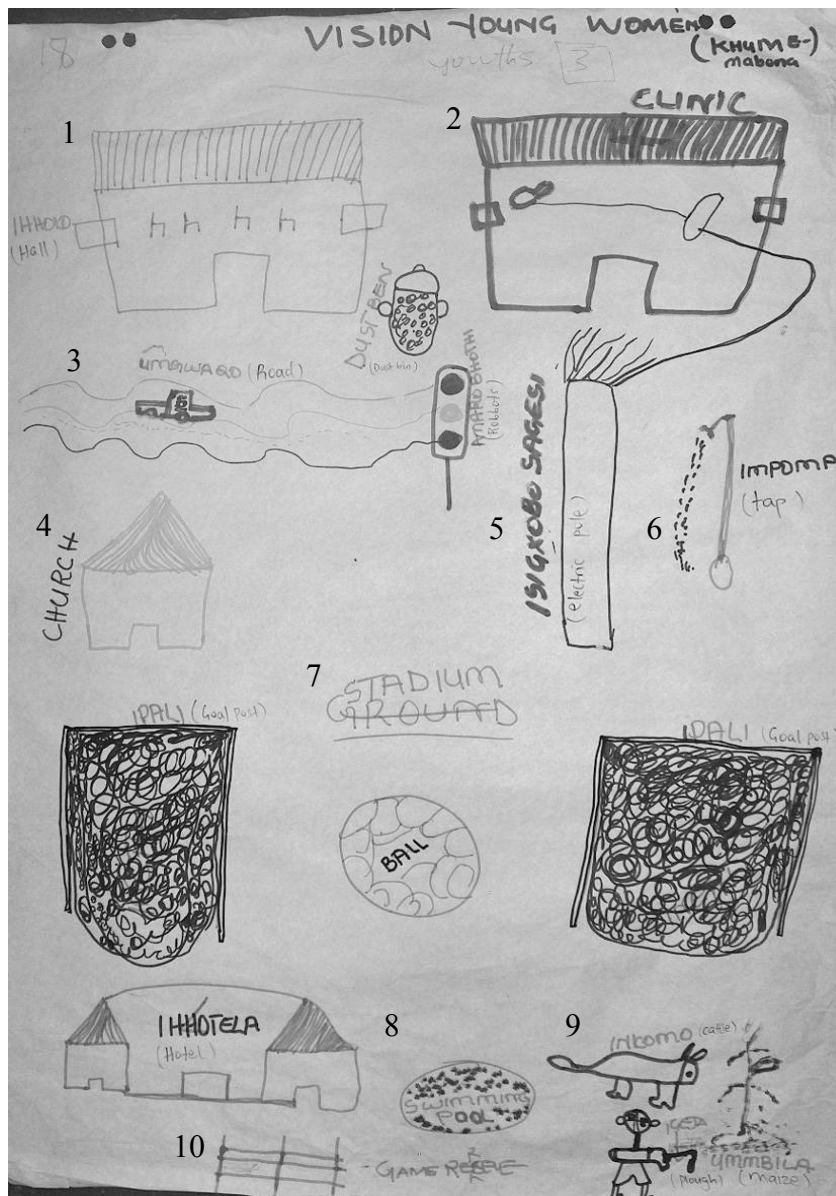 18
VISION YOUNG WOMEN
(KHUME-)
mabona
youths 3
1
2
CLINIC
IHHOLO
(Hall)
DUSTBEN
(Dust bin)
3
UMGWAQO (Road)
AMAROBHOTHI
(Robbots)
4
CHURCH
5
ISIGXOBO SAGESI
(electric pole)
6
IMPOMPI
(tap)
7
STADIUM
GROUND
IPALI (Goal post)
IPALI (Goal post)
BALL
IHHOTELA
(Hotel)
8
SWIMMING
POOL
9
INKOMO (cattle)
(plough)
UMMBILA
(maize)
10
GAME